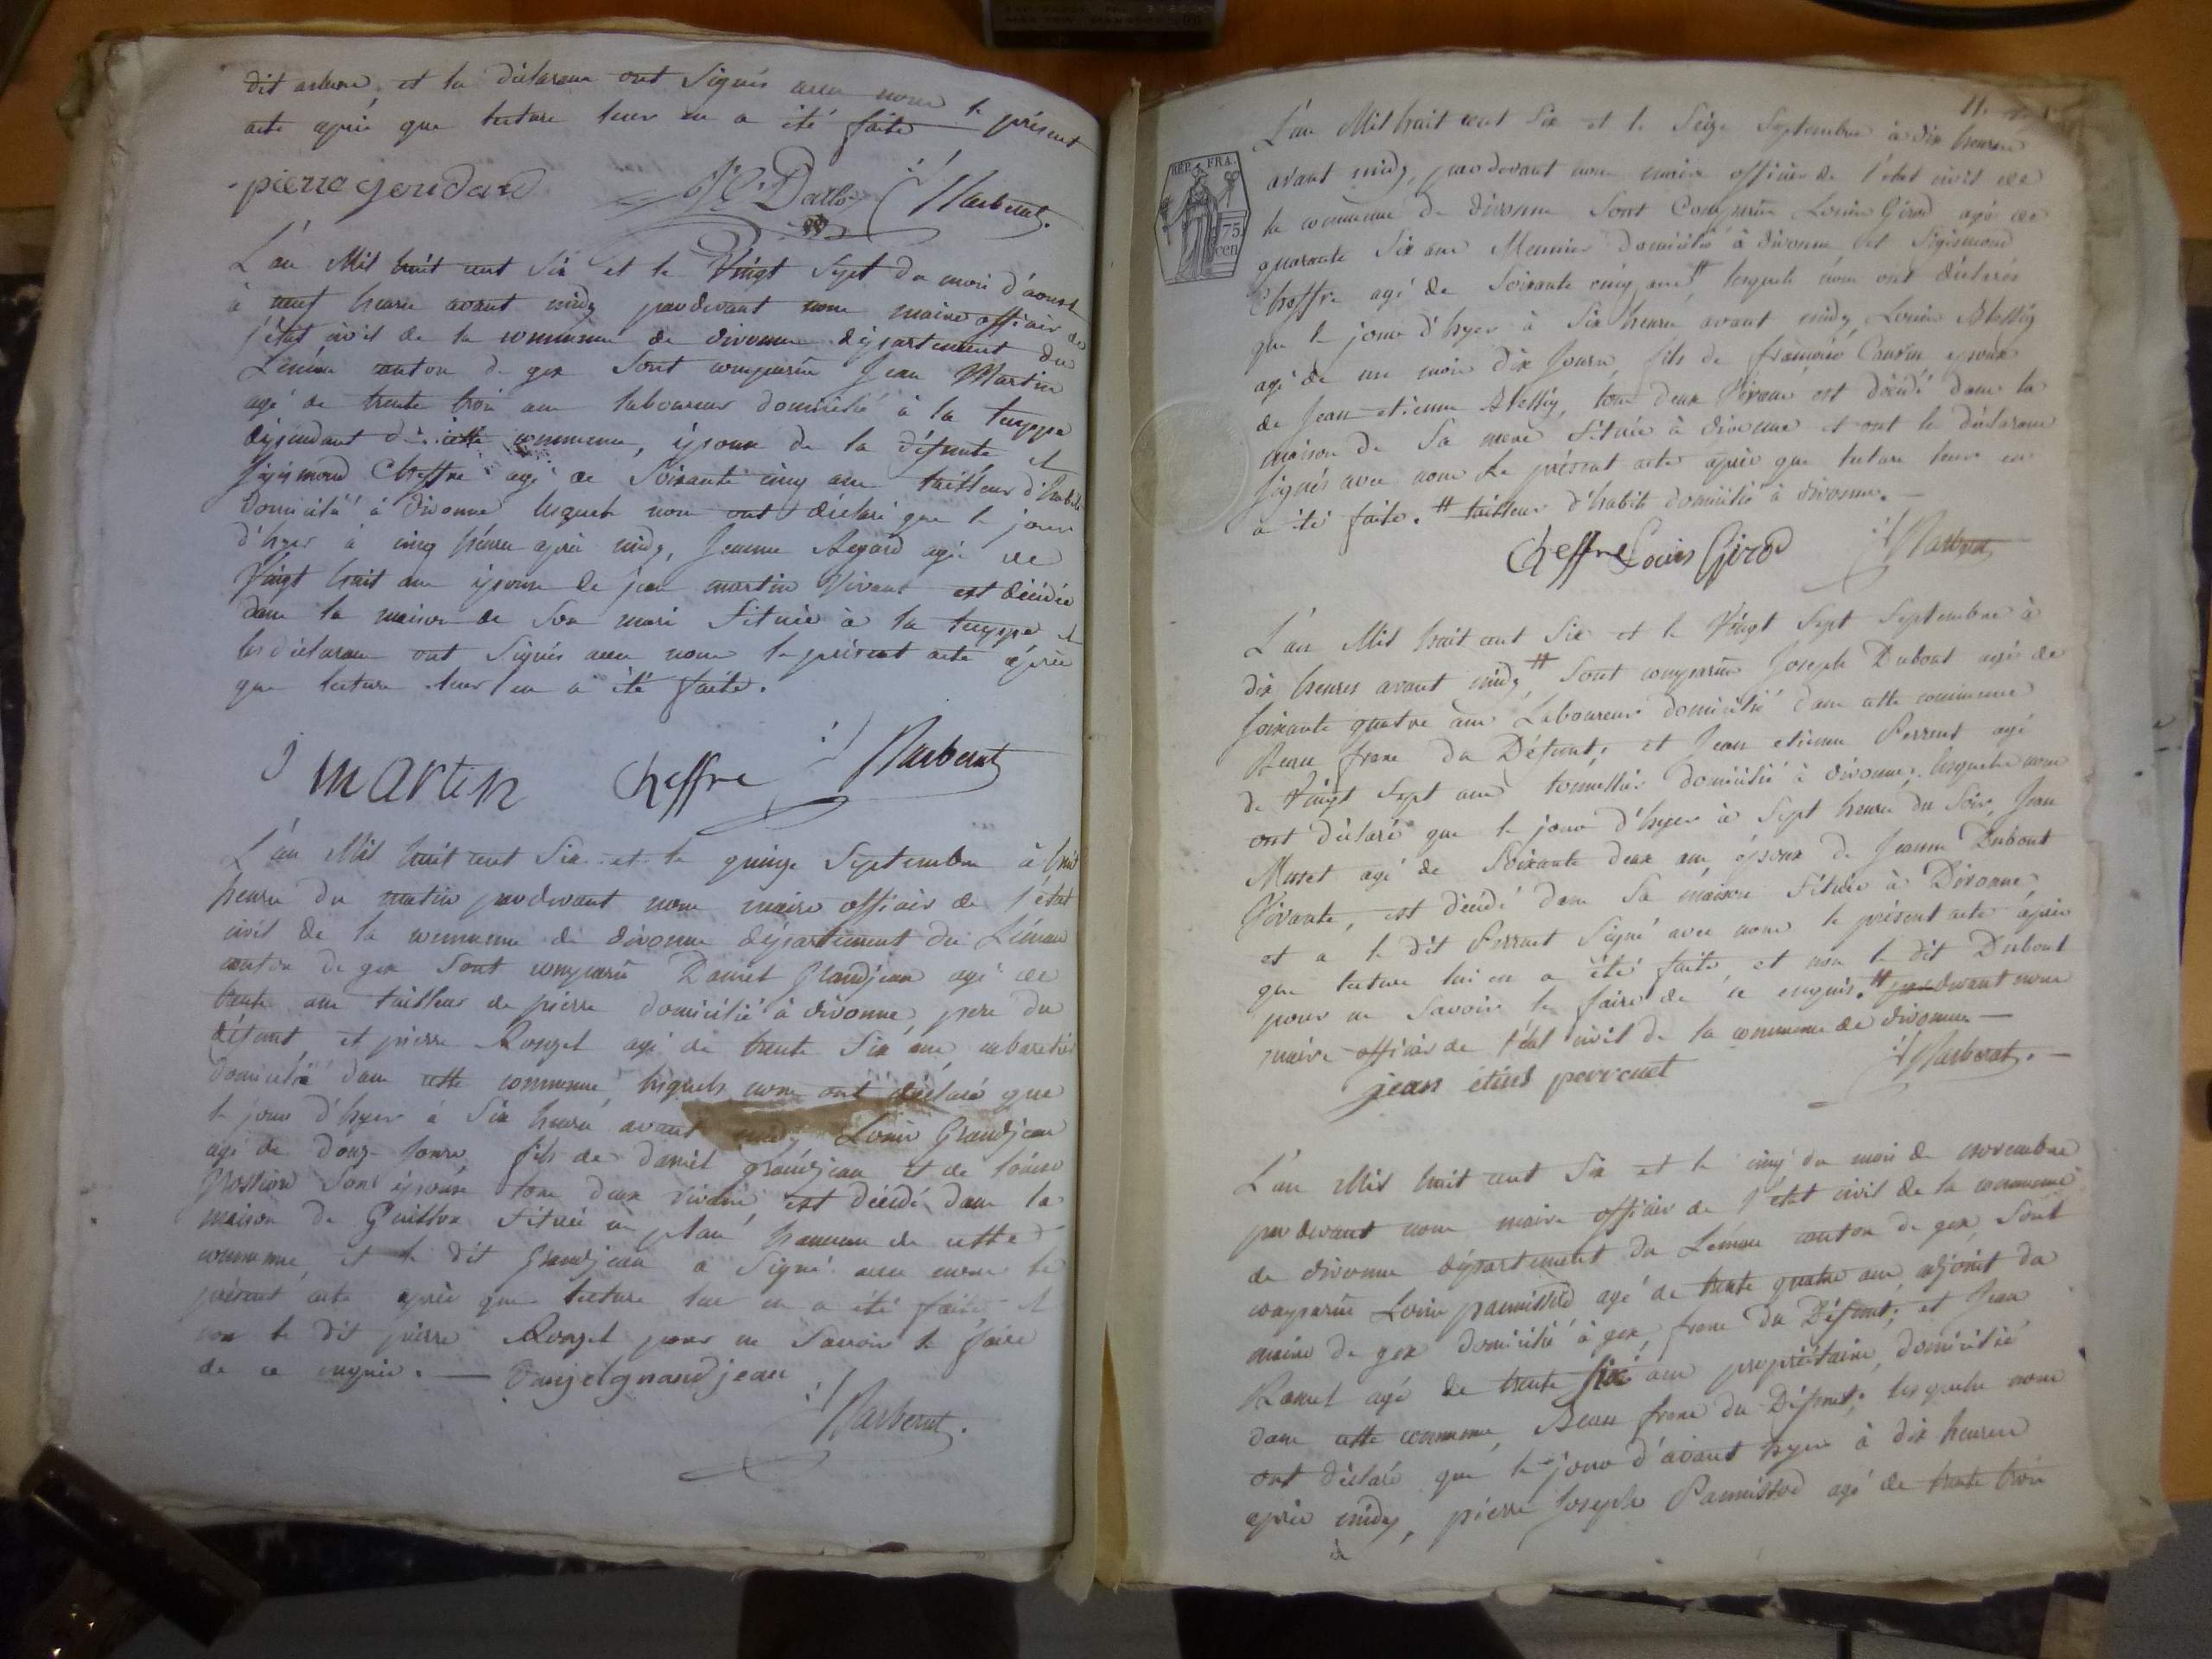 dit arbere, et la déclarans ont Signés avec nous le présent
acte après que lecture leur en a été faite
pierre goudard J C Darlo Narberat
L'an Mil huit cent Six et le Vingt Sept du mois d'aoust
à neuf heures avant midy pardevant nous maire officier de
l'état civil de la commune de divonne département du
Leman canton de gex Sont comparus Jean Martin
agé de trente trois ans laboureur domicilié à la
dépendant de cette commune, époux de la défunte et
Sigismond Cheffre agé de Soixante cinq ans tailleur d'habits
Domicilié à Divonne lesquels nous ont déclaré que le jour
d'hyer à cinq heures après midy, Jeanne Regard agée de
Vingt huit ans épouse de jean martin Vivant est décédée
dans la maison de Son mari Située à la et
les déclarans ont Signés avec nous le présent acte après
que lecture leur en a été faite.
j martin Cheffre Narberat
L'an Mil huit cent Six et le quinze Septembre à huit
heures du matin pardevant nous maire officier de l'état
civil de la commune de divonne département du Léman
canton de gex Sont comparus Daniel Grandjean agé de
trente ans tailleur de pierre domicilié à divonne, pere du
défunt et pierre Rouget agé de trente Six ans cabaretier
domicilié dans cette commune, lesquels nous ont déclaré que
le jour d'hyer à Six heures avant midy Louis Grandjean
agé de Douze Jours fils de daniel grandjean et de louise
Son épouse tous deux vivans, est décédé dans la
maison de Située a plan hameau de cette
commune, et le dit Grandjean a Signé avec nous le
présent acte après que lecture leur en a été faite, et
non le dit pierre Rouget pour ne Savoir le faire
de ce enquis. — Danijel grandjean
Narberat.
11.
REP. FRA.
75
cen
L'an Mil huit cent Six et le Seize Septembre à dix heures
avant midy, pardevant nous maire officier de l'état civil de
la commune de divonne Sont Comparus Louis Girod agé de
quarante Six ans Meunier domicilié à divonne et Sigismond
Cheffre agé de Soixante cinq ans # lesquels nous ont déclarés
que le jour d'hyer à Six heures avant midy Louis
agé de un mois dix Jours, fils de françoise époux
de Jean etienne tous deux Vivans est décédé dans la
maison de Sa mere Située à divonne et ont les déclarans
Signés avec nous Le présent acte après que lecture leur en
a été faite. # tailleur d'habits domicilié à divonne. —
Cheffre Louis Girod Narberat
L'an Mil huit cent Six et le Vingt Sept Septembre à
dix heures avant midy # Sont comparus Joseph Dubout agé de
Soixante quatre ans Laboureur domicilié dans cette commune
Beau frere du Défunt, et Jean etienne Perrent agé
de Vingt Sept ans tonnellier domicilié à divonne, lesquels nous
ont déclaré que le jour d'hyer à Sept heures du Soir, Jean
Musset agé de Soixante deux ans, époux de Jeanne Dubout
Vivante, est décédé dans Sa maison Située à Divonne,
et a le dit Perrent Signé avec nous le présent acte après
que lecture lui en a été faite, et non le dit Dubout
pour ne Savoir le faire de ce enquis. # pardevant nous
maire officier de l'état civil de la commune de divonne —
jean etiens perrenet Narberat. —
L'an Mil huit cent Six et le cinq du mois de novembre
pardevant nous maire officier de l'état civil de la commune
de divonne département du Léman canton de gex, Sont
comparus Louis panissod agé de trente quatre ans, adjoint du
maire de gex domicilié à gex, frere du Défunt; et Jean
Ramel agé de trente Six ans propriétaire, domicilié
dans cette commune, Beau frere du Défunt; lesquels nous
ont déclaré que le jour d'avant hyer à dix heures
après midy, pierre Joseph Panissod agé de trente trois